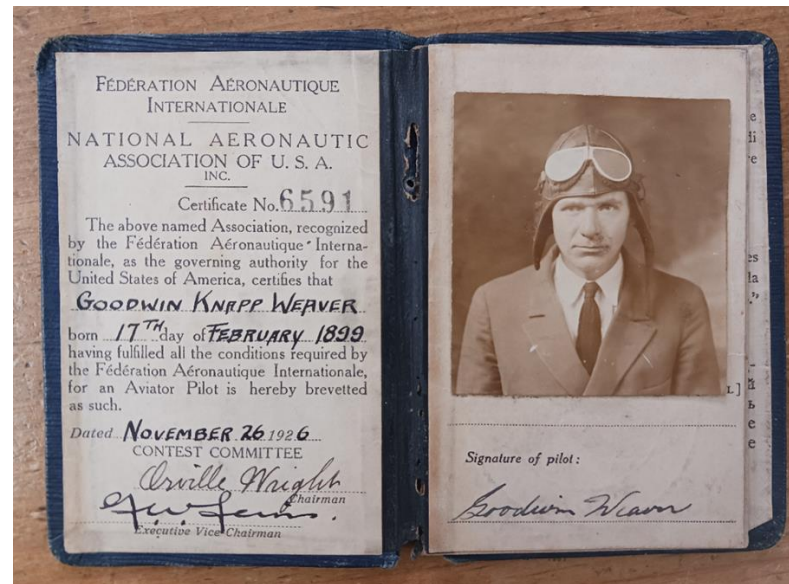 FÉDÉRATION AÉRONAUTIQUE
INTERNATIONALE
NATIONAL AERONAUTIC
ASSOCIATION OF U. S. A.
INC.
Certificate No. 6591
The above named Association, recognized
by the Fédération Aéronautique Interna-
tionale, as the governing authority for the
United States of America, certifies that
GOODWIN KNAPP WEAVER
born 17TH day of FEBRUARY 1899
having fulfilled all the conditions required by
the Fédération Aéronautique Internationale,
for an Aviator Pilot is hereby brevetted
as such.
Dated NOVEMBER 26 1926
CONTEST COMMITTEE
Orville Wright
Chairman
Executive Vice Chairman
L]
Signature of pilot:
Goodwin Weaver